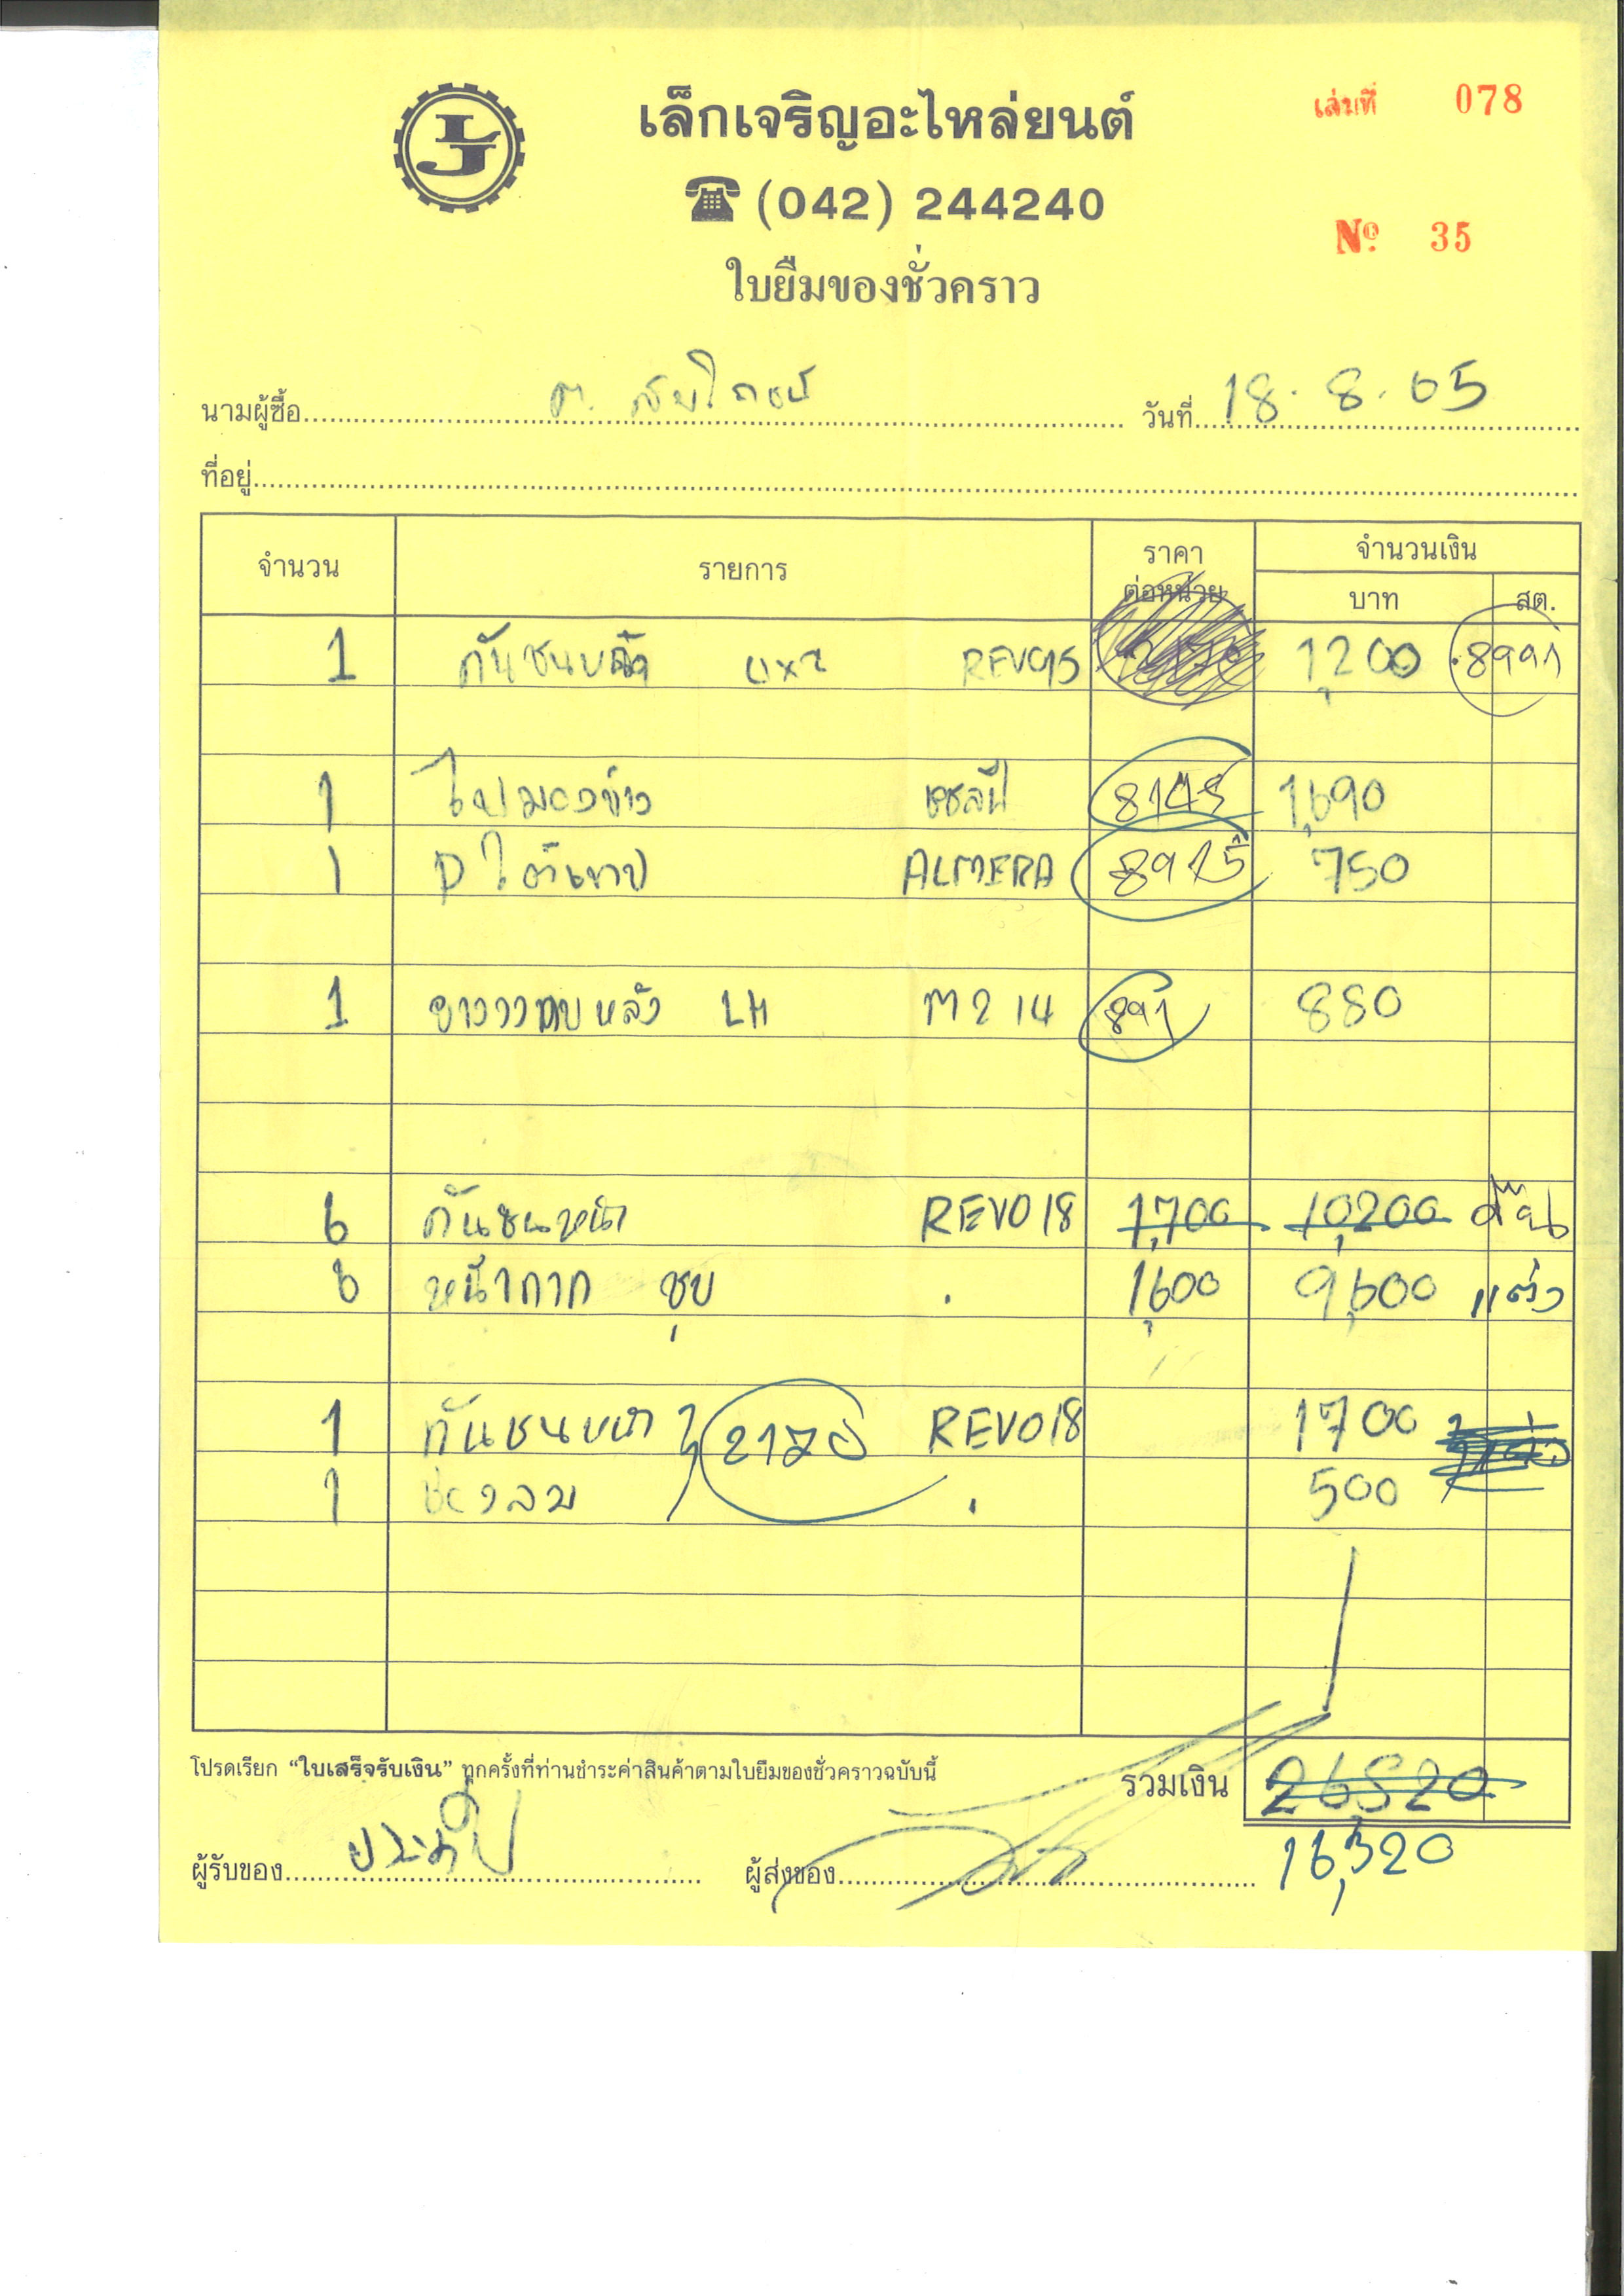 เล่มที่ 078
LJ
เล็กเจริญอะไหล่ยนต์
☎ (042) 244240
Nº 35
ใบยืมของชั่วคราว
นามผู้ซื้อ วันที่ 18.8.65
ที่อยู่
จำนวน รายการ ราคาต่อหน่วย จำนวนเงิน
บาท สต.
1 กันชนหน้า REVO15 1,200 8991
1 ไฟมองข้าง 1,690
1 ALMERA 8915 750
1 หลัง LH M214 891 880
6 กันชนหน้า REVO18 1,700 10,200
6 หน้ากาก ชุบ . 1,600 9,600 แต่ง
1 กันชนหน้า REVO18 1700
1 ช่องลม . 500
โปรดเรียก “ใบเสร็จรับเงิน” ทุกครั้งที่ท่านชำระค่าสินค้าตามใบยืมของชั่วคราวฉบับนี้
รวมเงิน 26,520
16,320
ผู้รับของ ผู้ส่งของ